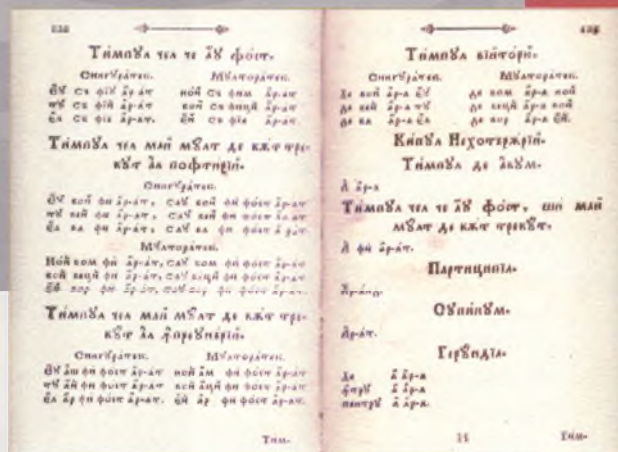 Тимпꙋл чел че аꙋ фост.
Сингꙋратек. Мꙋлторатек.
еꙋ съ фіꙋ ар-ат ной съ фим ар-ат.
тꙋ съ фій ар-ат вой съ фиці ар-ат.
ел съ фіе ар-ат. ей съ фіе ар-ат.
Тимпꙋл чел май мꙋлт де кѫт тре-
кꙋт ла пофтирїй.
Сингꙋратек.
еꙋ вой фи ар-ат, саꙋ вой фи фост ар-ат
тꙋ вей фи ар-ат, саꙋ вей фи фост ар-ат
ел ва фи ар-ат, саꙋ ва фи фост ар-ат.
Мꙋлторатек.
Ной вом фи ар-ат, саꙋ вом фи фост ар-ат
вой веці фи ар-ат, саꙋ веці фи фост ар-ат
ей вор фи ар-ат, саꙋ вор фи фост ар-ат.
Тимпꙋл чел май мꙋлт де кѫт тре-
кꙋт ла ꙟпреꙋнарїй.
Сингꙋратек. Мꙋлторатек.
еꙋ аш фи фост ар-ат ной ам фи фост ар-ат
тꙋ ай фи фост ар-ат вой аці фи фост ар-ат
ел ар фи фост ар-ат. ей ар фи фост ар-ат.
Тим-
Тимпꙋл вїиторїꙋ.
Сингꙋратек. Мꙋлторатек.
де вой ар-а еꙋ де вом ар-а ной
де вей ар-а тꙋ де веці ар-а вой
де ва ар-а ел де вор ар-а ей.
Кипꙋл Нехотерѫрїй.
Тимпꙋл де акꙋм.
А ар-а
Тимпꙋл чел че аꙋ фост, ши май
мꙋлт де кѫт трекꙋт.
А фи ар-ат.
Партиципїа.
Ар-анд.
Сꙋпинꙋм.
Ар-ат.
Герꙋндїа.
де а ар-а
ꙟтрꙋ а ар-а
пентрꙋ а ар-а.
Тим-